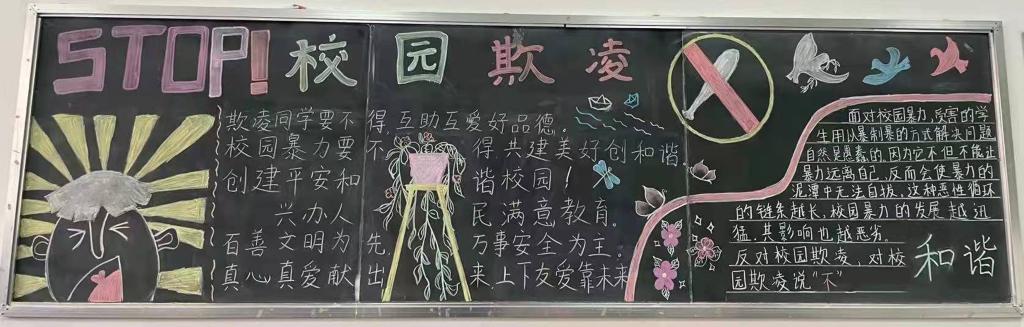 STOP! 校园欺凌
欺凌同学要不得,互助互爱好品德。
校园暴力要不得,共建美好创和谐
创建平安和谐校园!
兴办人民满意教育。
百善文明为先万事安全为主。
真心真爱献出来,上下友爱靠未来
面对校园暴力,受害的学
生用以暴制暴的方式解决问题
自然是愚蠢的,因为它不但不能让
暴力远离自己,反而会使暴力的
泥潭中无法自拔、这种恶性循环
的链条越长,校园暴力的发展越迅
猛,其影响也越恶劣。
反对校园欺凌,对校
园欺凌说"不"
和谐